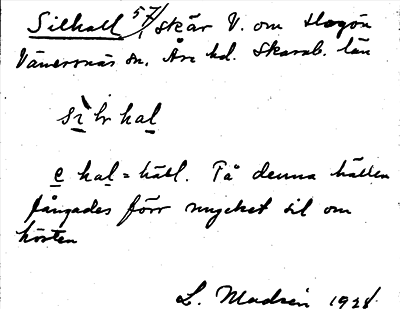 Silhall 57/ skär V. om Hagön
Vänersnäs sn. Åse hd. Skarab. län
hal
e hal = häll. På denna hällen
fångades förr mycket sil om
hösten
L. Madsén 1928